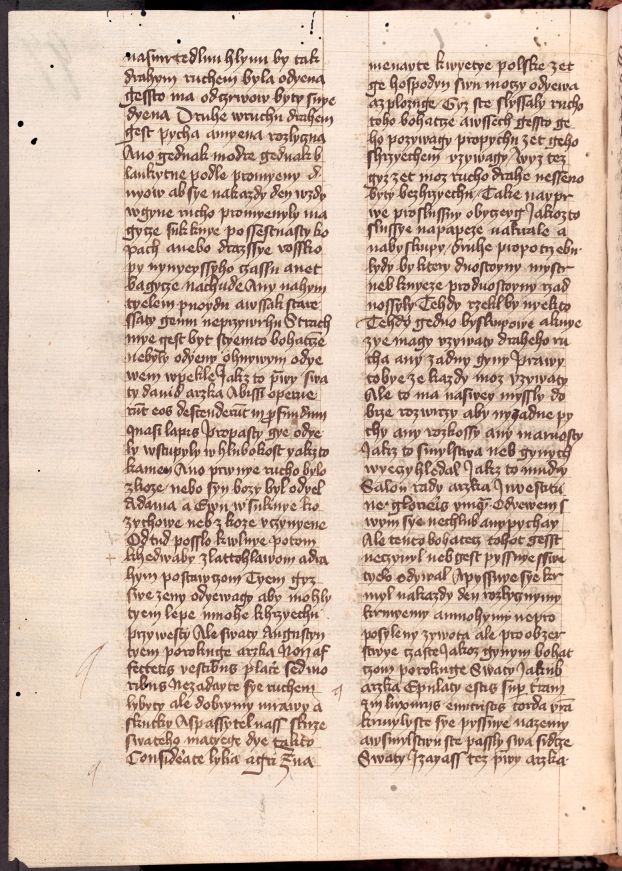 nasmrtedlny hlyny by tak
drahym ruchem byla odyena
gessto ma odczrwow byty snye
dyena Druhe wruchu drahem
gest pycha a myena rozlyczna
Ano gednak modre gednak b
lankytne podle promyeny d
nyow ab sye nakazdy den wzdy
w gyne rucho promyenyly ma
gycze sukinye possestnasty ko
pach anebo drazssye
py nynyeyssyho czassu anet
bagycze nachude Any nahym
tyelem pnoydu awssak stare
ssaty genm neprzywrhu Strach
mye gest byt styemto bohatcze
nebyty odyeny ohnywym odye
wem wpekle Jakz to prwy swa
ty dauid arzka Abissi operue
runt eos descenderunt in profundum
quasi lapis Propasty gye odye
ly wstupyly w hlubokost yakzto
kamen Ano prwnye rucho bylo
zkoze nebo syn bozy byl odyel
Adama a Ewu w sukinye ko
zychowe neb z koze vczynyene
Od tud possla kwlnye potom
khedwaby zlattohlawom a dra
hym postawczom Tyem gyz
swe zeny odyewagy aby mohly
tyem lepe mnohe khrzyechu
przywesty Ale swaty Augustyn
tyem porokuge arzka Non af
fectetis vestibus placere sed mo
ribus Nezadayte sye ruchem
lybyty ale dobrymy mrawy a
skutky Aspassytel nass skrze
swateho matyege dye takto
Considerate lylia agri Zna
menayte kwyetye polske zet
ge hospodyn swu moczy odyewa
a zplozuge Gyz ste slyssaly rucho
toho bohatcze awssech gessto ge
ho pozywagy propychu zet geho
skrzyechem vzywagy Wyz tez
gyz zet moz rucho drahe nesseno
byty bezhrzyechu Take naypr
we pro slussny obyczeyg Jakozto
slussye napapeze nakrale a
nabyskupy Druhe pro potrzebu
kdy by ktery duostoyny mystr
neb knyeze produostoyny rzad
nossyly Tehdy rzekl by nyekto
Tehdy gedno byskupowe aknye
zye magy vzywaty draheho ru
cha any zadny gyny Prawy
tobye ze kazdy moz vzywaty
Ale to ma naswey myssly do
brze rozwrczy aby nyzadne py
chy any rozkossy any marnosty
Jakz to smylstwa neb gynych
wyeczy hledal Jakz to mudry
Salon rady arzka In vestitu
ne glorieris vmquam Odyewem s
wym sye nechlub any pychay
Ale tento bohatecz tohot gesst
neczynyl neb gest pyssnye sswe
tyelo odywal Apyssnye sye kr
myl nakazdy den rozlycznymy
krmyemy a mnohymy nepro
posyleny zywota ale pro obzer
stwye czaste Jakoz gynym bohat
czom porokuge Swaty Jakub
arzka Epulati estis super terram
et in luxuriis enutristis corda vestra
krmyly ste sye pyssnye nazemy
awsmylstwu ste passly swa sydcze
Swaty Izayass tez prwy arzka